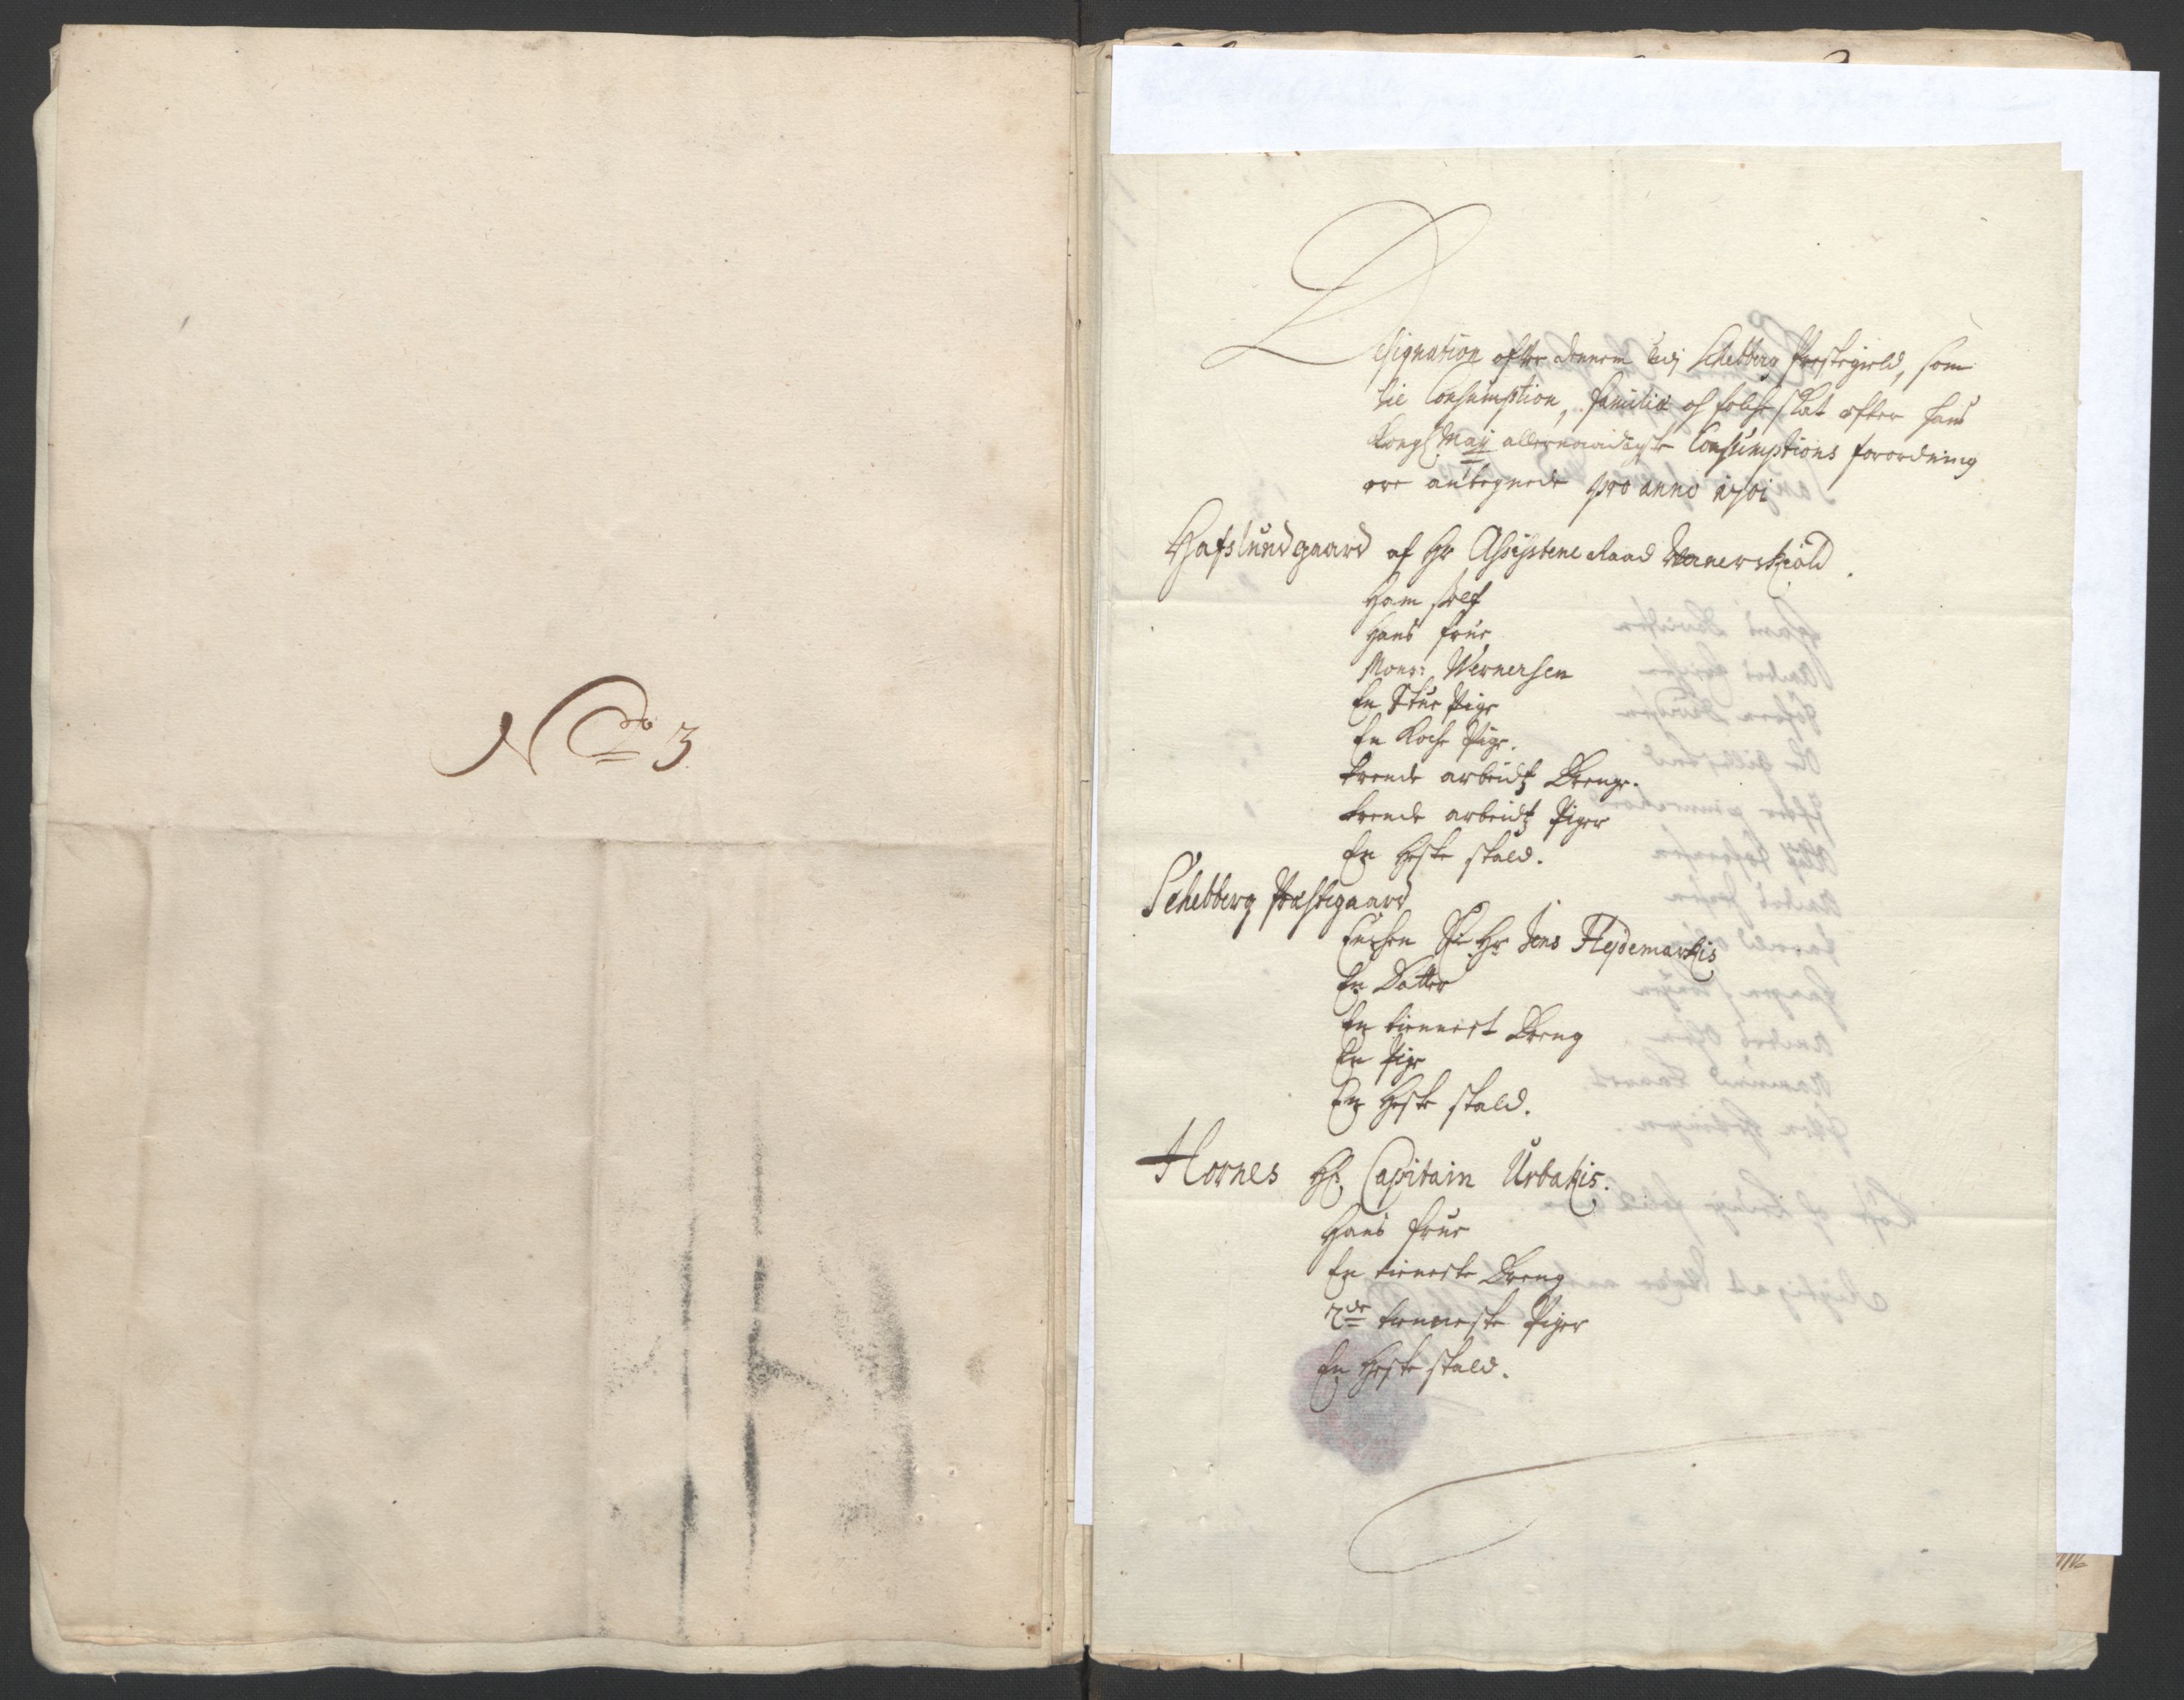 No 3
Designation ofver dennem udj Schebberg Prestegield, som
til Consumption, familie og folche skat efter hans
Kongl. Maij allernaadigste Consumptions forordning
ere antegnede pro anno 1701
Hafslundgaard af Hr Assistens Raad Wernerskiold.
Ham self
Hans frue
Monsr: Wernersen
En Stue Pige
En Koche Pige.
trende arbeidtz Drenge.
trende arbeidtz Piger
En Heste stald.
Schebberg Præstegaard
Enchen Sl. Hr Jens Heydemarkis
En Datter
En tiennest Dreng
En Pige
En Heste stald.
Hornes Hr. Capitain Urbakis.
Hans frue
En tieneste Dreng
2de tienneste Piger
En Heste stald.